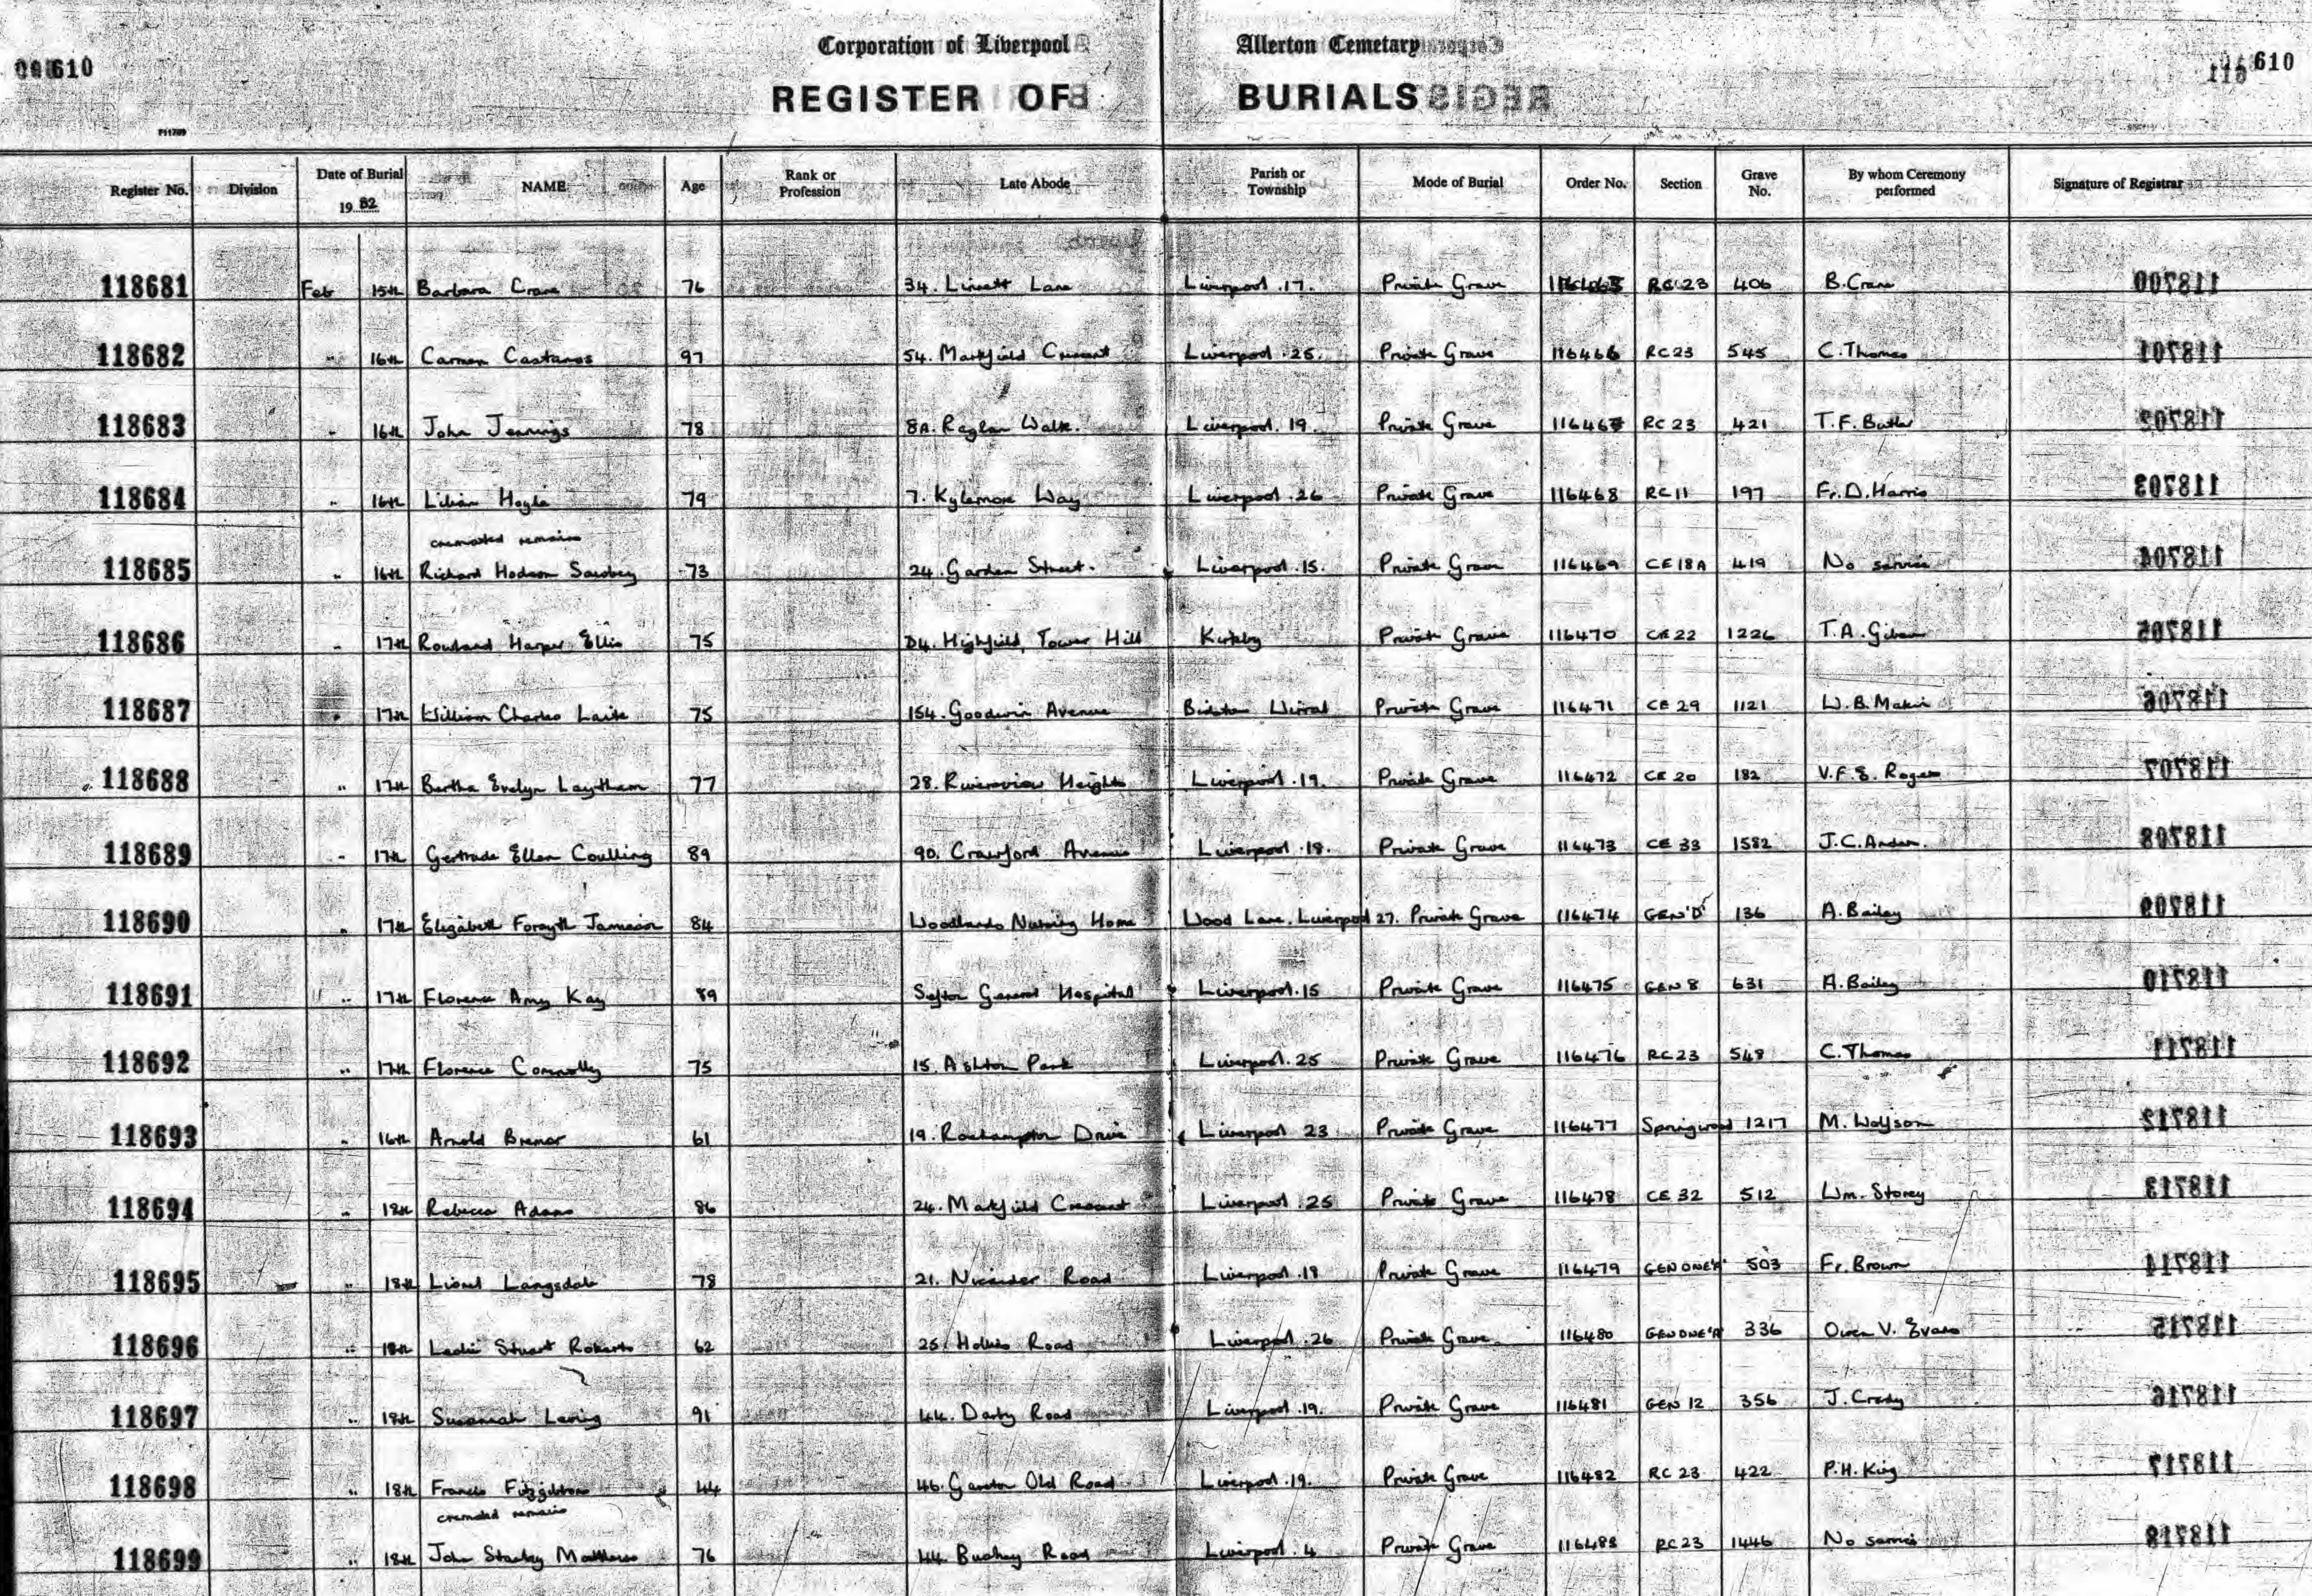 Corporation of Liverpool Allerton Cemetary
610 610
REGISTER OF BURIALS
Register No. Division Date of Burial 19 82 NAME Age Rank or Profession Late Abode Parish or Township Mode of Burial Order No. Section Grave No. By whom Ceremony performed Signature of Registrar
118681 Feb 15th Barbara Crane 76 34. Linnett Lane Liverpool .17. Private Grave 116465 RC 23 406 B. Crane
118682 " 16th Carmen Castanos 97 54. Markfield Crescent Liverpool .25. Private Grave 116466 RC23 545 C. Thomas
118683 " 16th John Jennings 78 8A. Raglan Walk. Liverpool. 19. Private Grave 116467 RC 23 421 T.F. Butler
118684 " 16th Lilian Hoyle 79 7. Kylemore Way Liverpool .26 Private Grave 116468 RC 11 197 Fr. D. Harris
cremated remains
118685 " 16th Richard Hodson Sowerby 73 24. Garden Street. Liverpool .15. Private Grave 116469 CE 18A 419 No service
118686 " 17th Rowland Harper Ellis 75 D4. Highfield, Tower Hill Kirkby Private Grave 116470 CE 22 1226 T.A.
118687 " 17th William Charles Laite 75 154. Goodwin Avenue Bidston Wirral Private Grave 116471 CE 29 1121 W.B. Makin
118688 " 17th Bertha Evelyn Laytham 77 28. Riverview Heights Liverpool .19. Private Grave 116472 CE 20 182 V.F.E. Rogers
118689 " 17th Gertrude Ellen Coulling 89 90. Crawford Avenue Liverpool .18. Private Grave 116473 CE 33 1582 J.C.
118690 " 17th Elizabeth Forsyth Jamieson 84 Woodlands Nursing Home Wood Lane. Liverpool 27. Private Grave 116474 GEN 'D' 136 A. Bailey
118691 " 17th Florence Amy Kay 89 Sefton General Hospital Liverpool.15 Private Grave 116475 GEN 8 631 A. Bailey
118692 " 17th Florence Connolly 75 15. Ashton Park Liverpool. 25 Private Grave 116476 RC 23 548 C. Thomas
118693 " 16th Arnold Bremner 61 19. Roehampton Drive Liverpool 23 Private Grave 116477 Springwood 1217 M. Wolfson
118694 " 18th Rebecca Adams 86 24. Markfield Crescent Liverpool .25 Private Grave 116478 CE 32 512 Wm. Storey
118695 " 18th Lionel Langsdale 78 21. Nicander Road Liverpool .18 Private Grave 116479 GEN ONE 'A' 503 Fr. Brown
118696 " 18th Leslie Stuart Roberts 62 25. Hollies Road Liverpool .26 Private Grave 116480 GEN ONE 'A' 336 Owen V. Evans
118697 " 18th Susannah 91 44. Darby Road Liverpool .19. Private Grave 116481 GEN 12 356 J. Crady
118698 " 18th Francis Fitzgibbon 44 46. Garston Old Road Liverpool .19. Private Grave 116482 RC 23 422 P.H. King
cremated remains
118699 " 18th John Stanley Matthews 76 44. Bushey Road Liverpool. 4 Private Grave 116483 RC 23 1446 No service